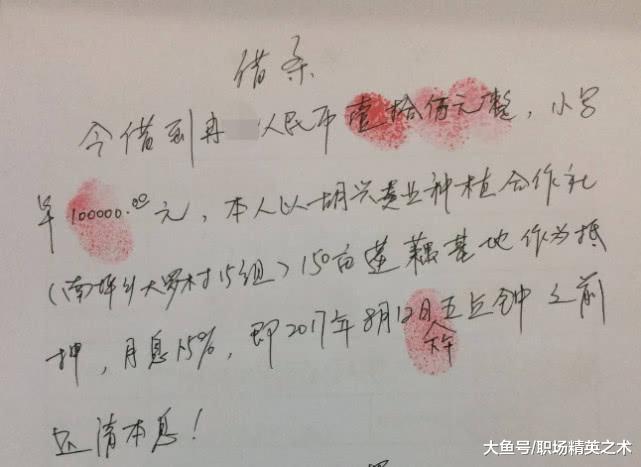 借条
今借到冉 人民币壹拾万元整，小写
￥100000.00元，本人以胡兴 业种植合作社
（南坪乡大罗村15组）150亩莲藕基地作为抵
押，月息15%，即2017年8月12日下午五点钟之前
还清本息！
大鱼号/职场精英之术